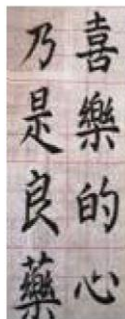 喜樂的心
乃是良藥